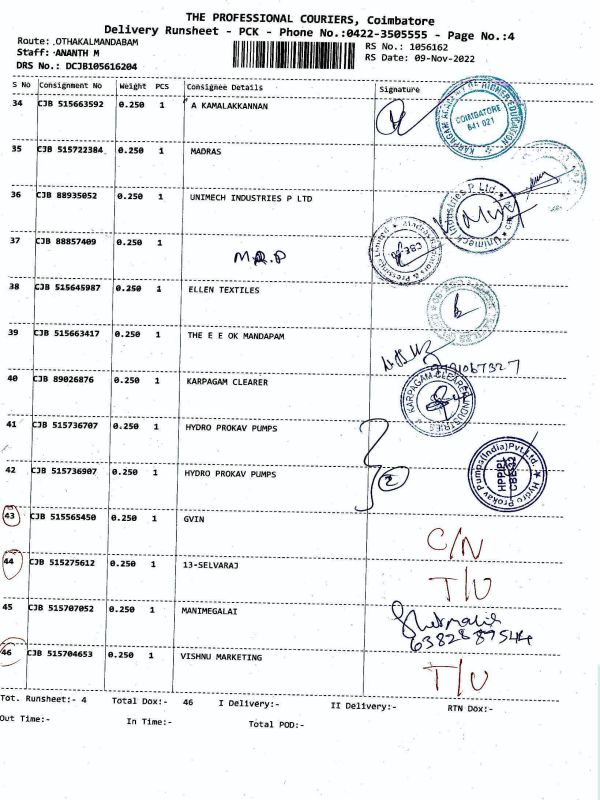 THE PROFESSIONAL COURIERS, Coimbatore
Delivery Runsheet - PCK - Phone No.:0422-3505555 - Page No.:4
Route: .OTHAKALMANDABAM
RS No.: 1056162
Staff: ANANTH M
RS Date: 09-Nov-2022
DRS No.: DCJB105616204
S No Consignment No Weight PCS Consignee Details Signature
34 CJB 515663592 0.250 1 A KAMALAKKANNAN
KARPAGAM ACADEMY OF HIGHER EDUCATION
COIMBATORE
641 021
35 CJB 515722384 0.250 1 MADRAS
36 CJB 88935052 0.250 1 UNIMECH INDUSTRIES P LTD
Unimech Industries P Ltd
37 CJB 88857409 0.250 1
M.R.P
38 CJB 515645987 0.250 1 ELLEN TEXTILES
39 CJB 515663417 0.250 1 THE E E OK MANDAPAM
40 CJB 89026876 0.250 1 KARPAGAM CLEARER
KARPAGAM CLEARER INDUSTRIES
41 CJB 515736707 0.250 1 HYDRO PROKAV PUMPS
42 CJB 515736907 0.250 1 HYDRO PROKAV PUMPS
2
Hydro Prokav Pumps(India)Pvt.Ltd.
43 CJB 515565450 0.250 1 GVIN
C/N
44 CJB 515275612 0.250 1 13-SELVARAJ
T/U
45 CJB 515707052 0.250 1 MANIMEGALAI
46 CJB 515704653 0.250 1 VISHNU MARKETING
T/U
Tot. Runsheet:- 4 Total Dox:- 46 I Delivery:- II Delivery:- RTN Dox:-
Out Time:- In Time:- Total POD:-